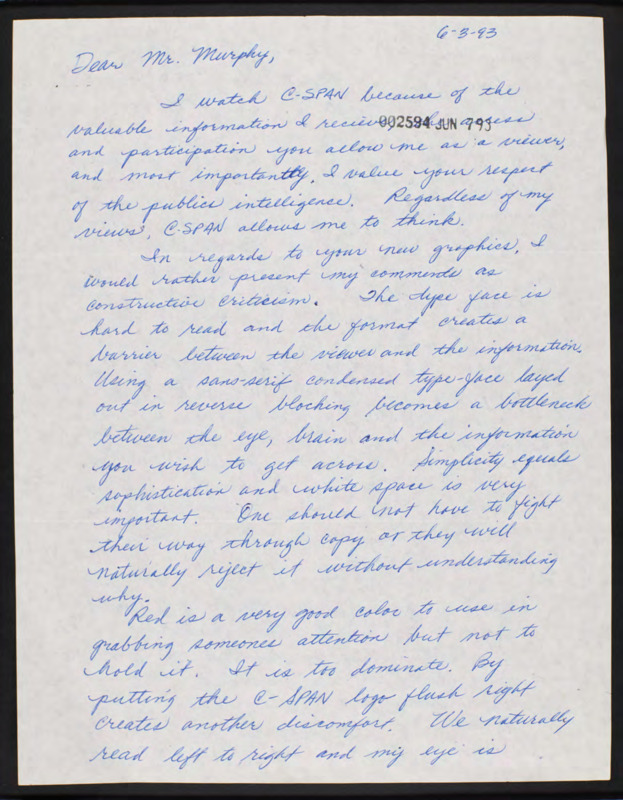 6-3-93
Dear Mr. Murphy,
I watch C-SPAN because of the
valuable information I recieve, the access
002594 JUN 793
and participation you allow me as a viewer,
and most importantly, I value your respect
of the publics intelligence. Regardless of my
views, C-SPAN allows me to think.
In regards to your new graphics, I
would rather present my comments as
constructive criticism. The type face is
hard to read and the format creates a
barrier between the viewer and the information.
Using a sans-serif condensed type-face layed
out in reverse blocking becomes a bottleneck
between the eye, brain and the information
you wish to get across. Simplicity equals
sophistication and white space is very
important. One should not have to fight
their way through copy or they will
naturally reject it without understanding
why.
Red is a very good color to use in
grabbing someones attention but not to
hold it. It is too dominate. By
putting the C-SPAN logo flush right
creates another discomfort. We naturally
read left to right and my eye is